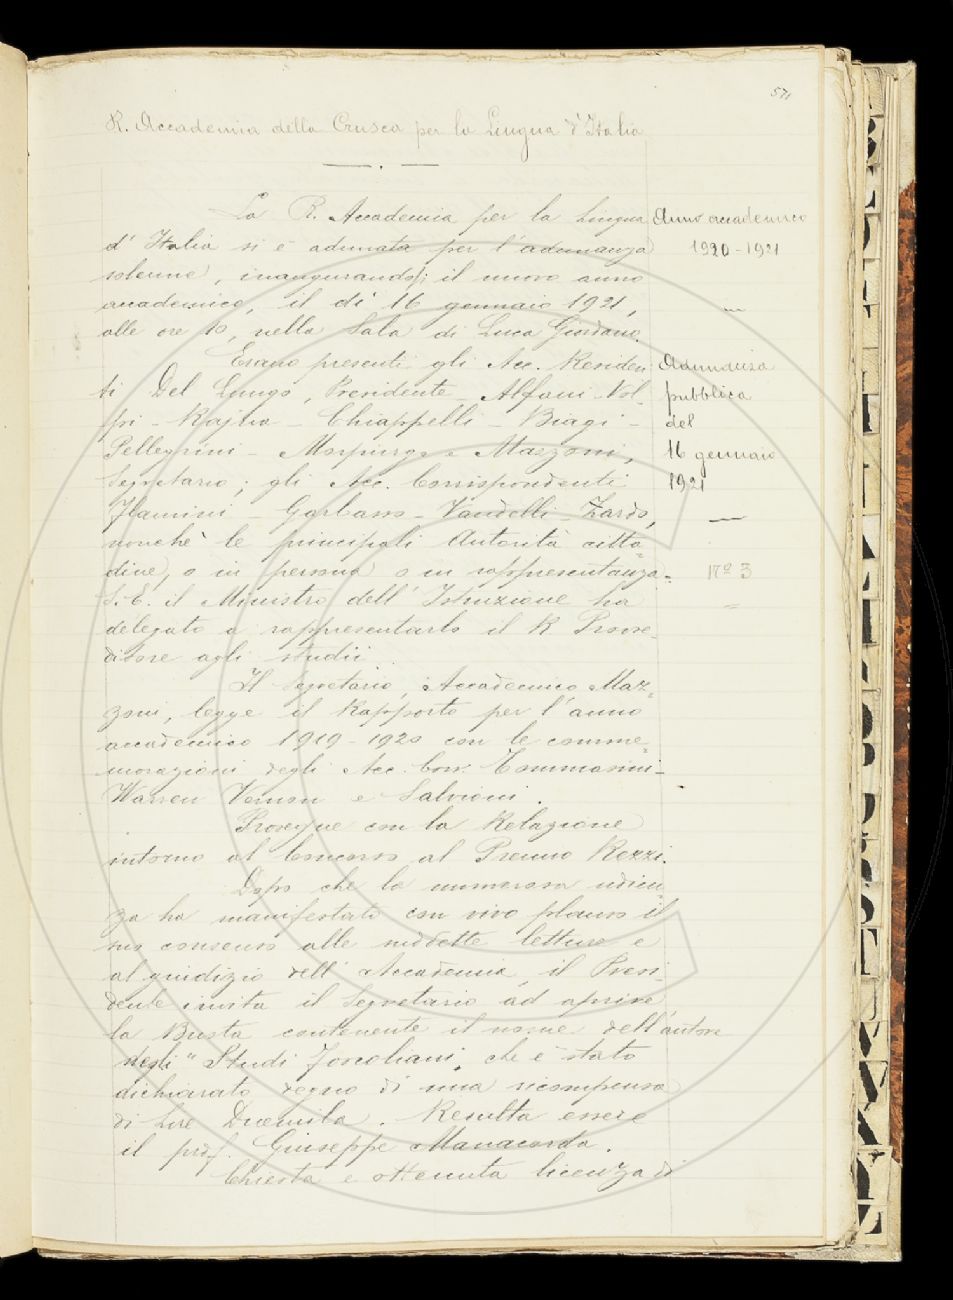 571
R. Accademia della Crusca per la Lingua d'Italia
La R. Accademia per la Lingua
d'Italia si è adunata per l'adunanza
solenne, inaugurandosi il nuovo anno
accademico, il dì 16 gennaio 1921,
alle ore 10, nella Sala di Luca Giordano.
Erano presenti gli Acc. Residen
ti Del Lungo, Presidente - Alfani - Vol-
pi - Rajna - Chiappelli - Biagi -
Pellegrini - Morpurgo e Mazzoni,
Segretario; gli Acc. Corrispondenti
Flamini - Garbasso - Vandelli - Zardo,
nonchè le principali Autorità citta-
dine, o in persona o in rappresentanza.
S. E. il Ministro dell'Istruzione ha
delegato a rappresentarlo il R. Provve-
ditore agli studii.
Il Segretario, Accademico Maz-
zoni, legge il Rapporto per l'anno
accademico 1919-1920 con le comme-
morazioni degli Acc. Corr. Tommasini -
Warren Vernon e Salvioni.
Prosegue con la Relazione
intorno al Concorso al Premio Rezzi.
Dopo che la numerosa udien-
za ha manifestato con vivo plauso il
suo consenso alle suddette letture e
al giudizio dell'Accademia, il Presi-
dente invita il Segretario ad aprire
la Busta contenente il nome dell'autore
degli "Studi Foscoliani, che è stato
dichiarato degno di una ricompensa
di Lire Duemila. Resulta essere
il prof. Giuseppe Manacorda.
Chiesta e ottenuta licenza di
Anno accademico
1920-1921
Adunanza
pubblica
del
16 gennaio
1921
N.º 3